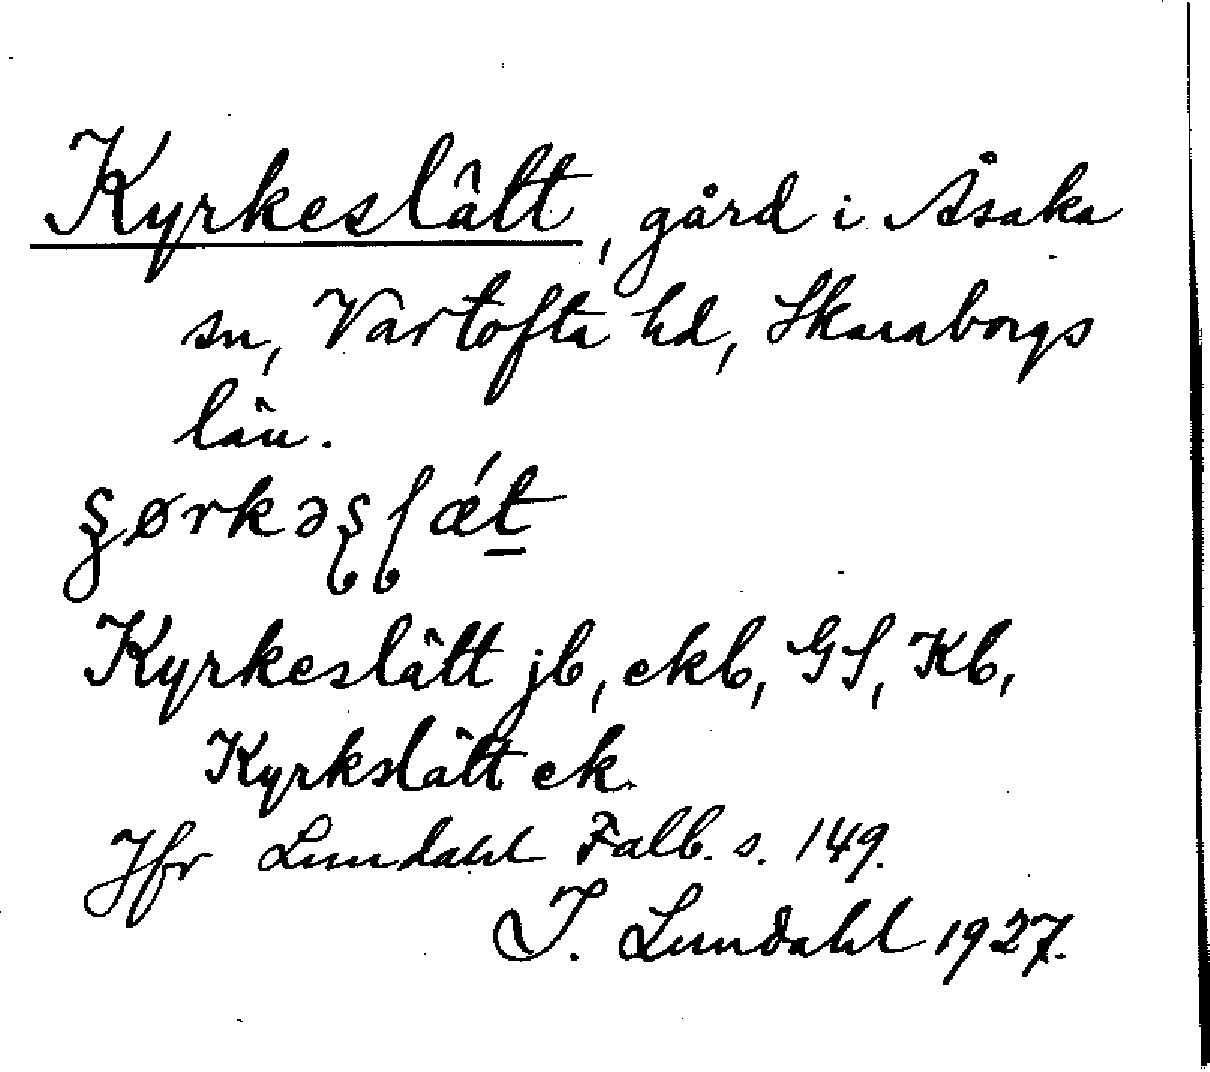 Kyrkeslätt, gård i Åsaka
sn, Vartofta hd, Skaraborgs
län.
Kyrkeslätt jb, ekb, GS, Kb,
Kyrkslätt ek.
Jfr Lundahl Falb. s. 149.
I. Lundahl 1927.